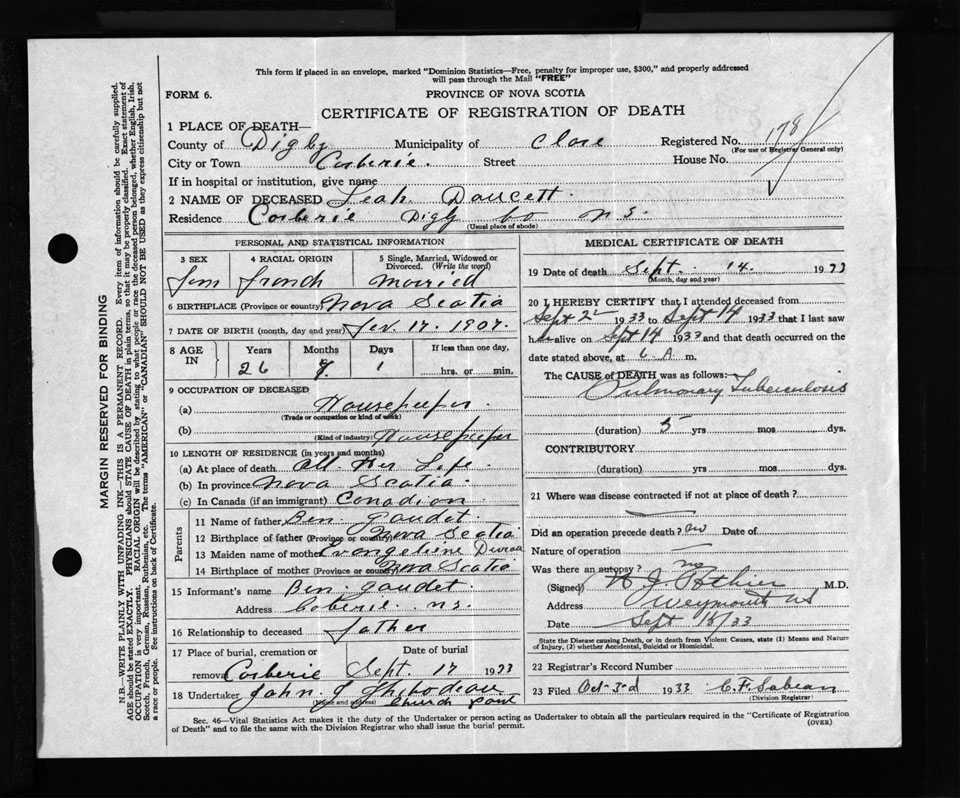 This form if placed in an envelope, marked "Dominion Statistics—Free, penalty for improper use, $300," and properly addressed
will pass through the Mail "FREE"
FORM 6.
PROVINCE OF NOVA SCOTIA
CERTIFICATE OF REGISTRATION OF DEATH
1 PLACE OF DEATH—
County of Digby Municipality of Clare Registered No. 178
(For use of Registrar General only)
City or Town Corberie. Street House No.
If in hospital or institution, give name
2 NAME OF DECEASED Leah Doucett.
Residence Corberie Digby Co N.S.
(Usual place of abode)
PERSONAL AND STATISTICAL INFORMATION
3 SEX
4 RACIAL ORIGIN
5 Single, Married, Widowed or
Divorced. (Write the word)
Fem French Married
6 BIRTHPLACE (Province or country) Nova Scotia
7 DATE OF BIRTH (month, day and year) 17. 1907.
8 AGE
IN
Years Months Days If less than one day,
26 1 hrs. or min.
9 OCCUPATION OF DECEASED
(a) Housekeeper
(Trade or occupation or kind of work)
(b) Housekeeper
(Kind of industry)
10 LENGTH OF RESIDENCE (in years and months)
(a) At place of death all Her Life.
(b) In province Nova Scotia.
(c) In Canada (if an immigrant) Canadian
Parents
11 Name of father Ben Gaudet.
12 Birthplace of father (Province or country) Nova Scotia
13 Maiden name of mother Evangeline
14 Birthplace of mother (Province or country) Nova Scotia
15 Informant's name Ben Gaudet.
Address Coberie. N.S.
16 Relationship to deceased Father
17 Place of burial, cremation or
removal Corberie
Date of burial
Sept. 17 1933
18 Undertaker John J Thibodeau
(Name and address) Church Point
MEDICAL CERTIFICATE OF DEATH
19 Date of death Sept. 14. 1933
(Month, day and year)
20 I HEREBY CERTIFY that I attended deceased from
Sept 2 1933 to Sept 14 1933 that I last saw
her alive on Sept 14 1933 and that death occurred on the
date stated above, at 6 A m.
The CAUSE of DEATH was as follows:
Pulmonary Tuberculosis
(duration) 5 yrs mos dys.
CONTRIBUTORY
(duration) yrs mos dys.
21 Where was disease contracted if not at place of death?
Did an operation precede death? no Date of
Nature of operation
Was there an autopsy? no
(Signed) Pothier M.D.
Address Weymouth NS
Date Sept 15/33
State the Disease causing Death, or in death from Violent Causes, state (1) Means and Nature
of Injury, (2) whether Accidental, Suicidal or Homicidal.
22 Registrar's Record Number
23 Filed Oct-3rd 1933 C. F. Sabean
(Division Registrar)
Sec. 46—Vital Statistics Act makes it the duty of the Undertaker or person acting as Undertaker to obtain all the particulars required in the "Certificate of Registration
of Death" and to file the same with the Division Registrar who shall issue the burial permit.
(OVER)
MARGIN RESERVED FOR BINDING
N.B.—WRITE PLAINLY WITH UNFADING INK—THIS IS A PERMANENT RECORD. Every item of information should be carefully supplied.
AGE should be stated EXACTLY. PHYSICIANS should STATE CAUSE OF DEATH in plain terms, so that it may be properly classified. Exact statement of
OCCUPATION is very important. RACIAL ORIGIN will be described by stating to what people or race the deceased person belonged, whether English, Irish,
Scotch, French, German, Russian, Ruthenian, etc. The terms "AMERICAN" or "CANADIAN" SHOULD NOT BE USED as they express citizenship but not
a race or people. See instructions on back of Certificate.